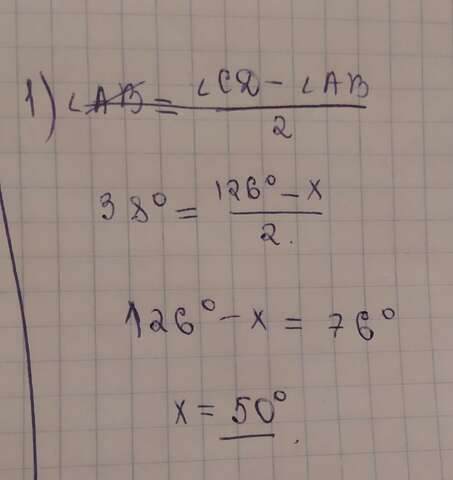 1) ∠A̶B̶ = (∠CD - ∠AB) / 2
38° = (126° - x) / 2.
126° - x = 76°
x = 50°.